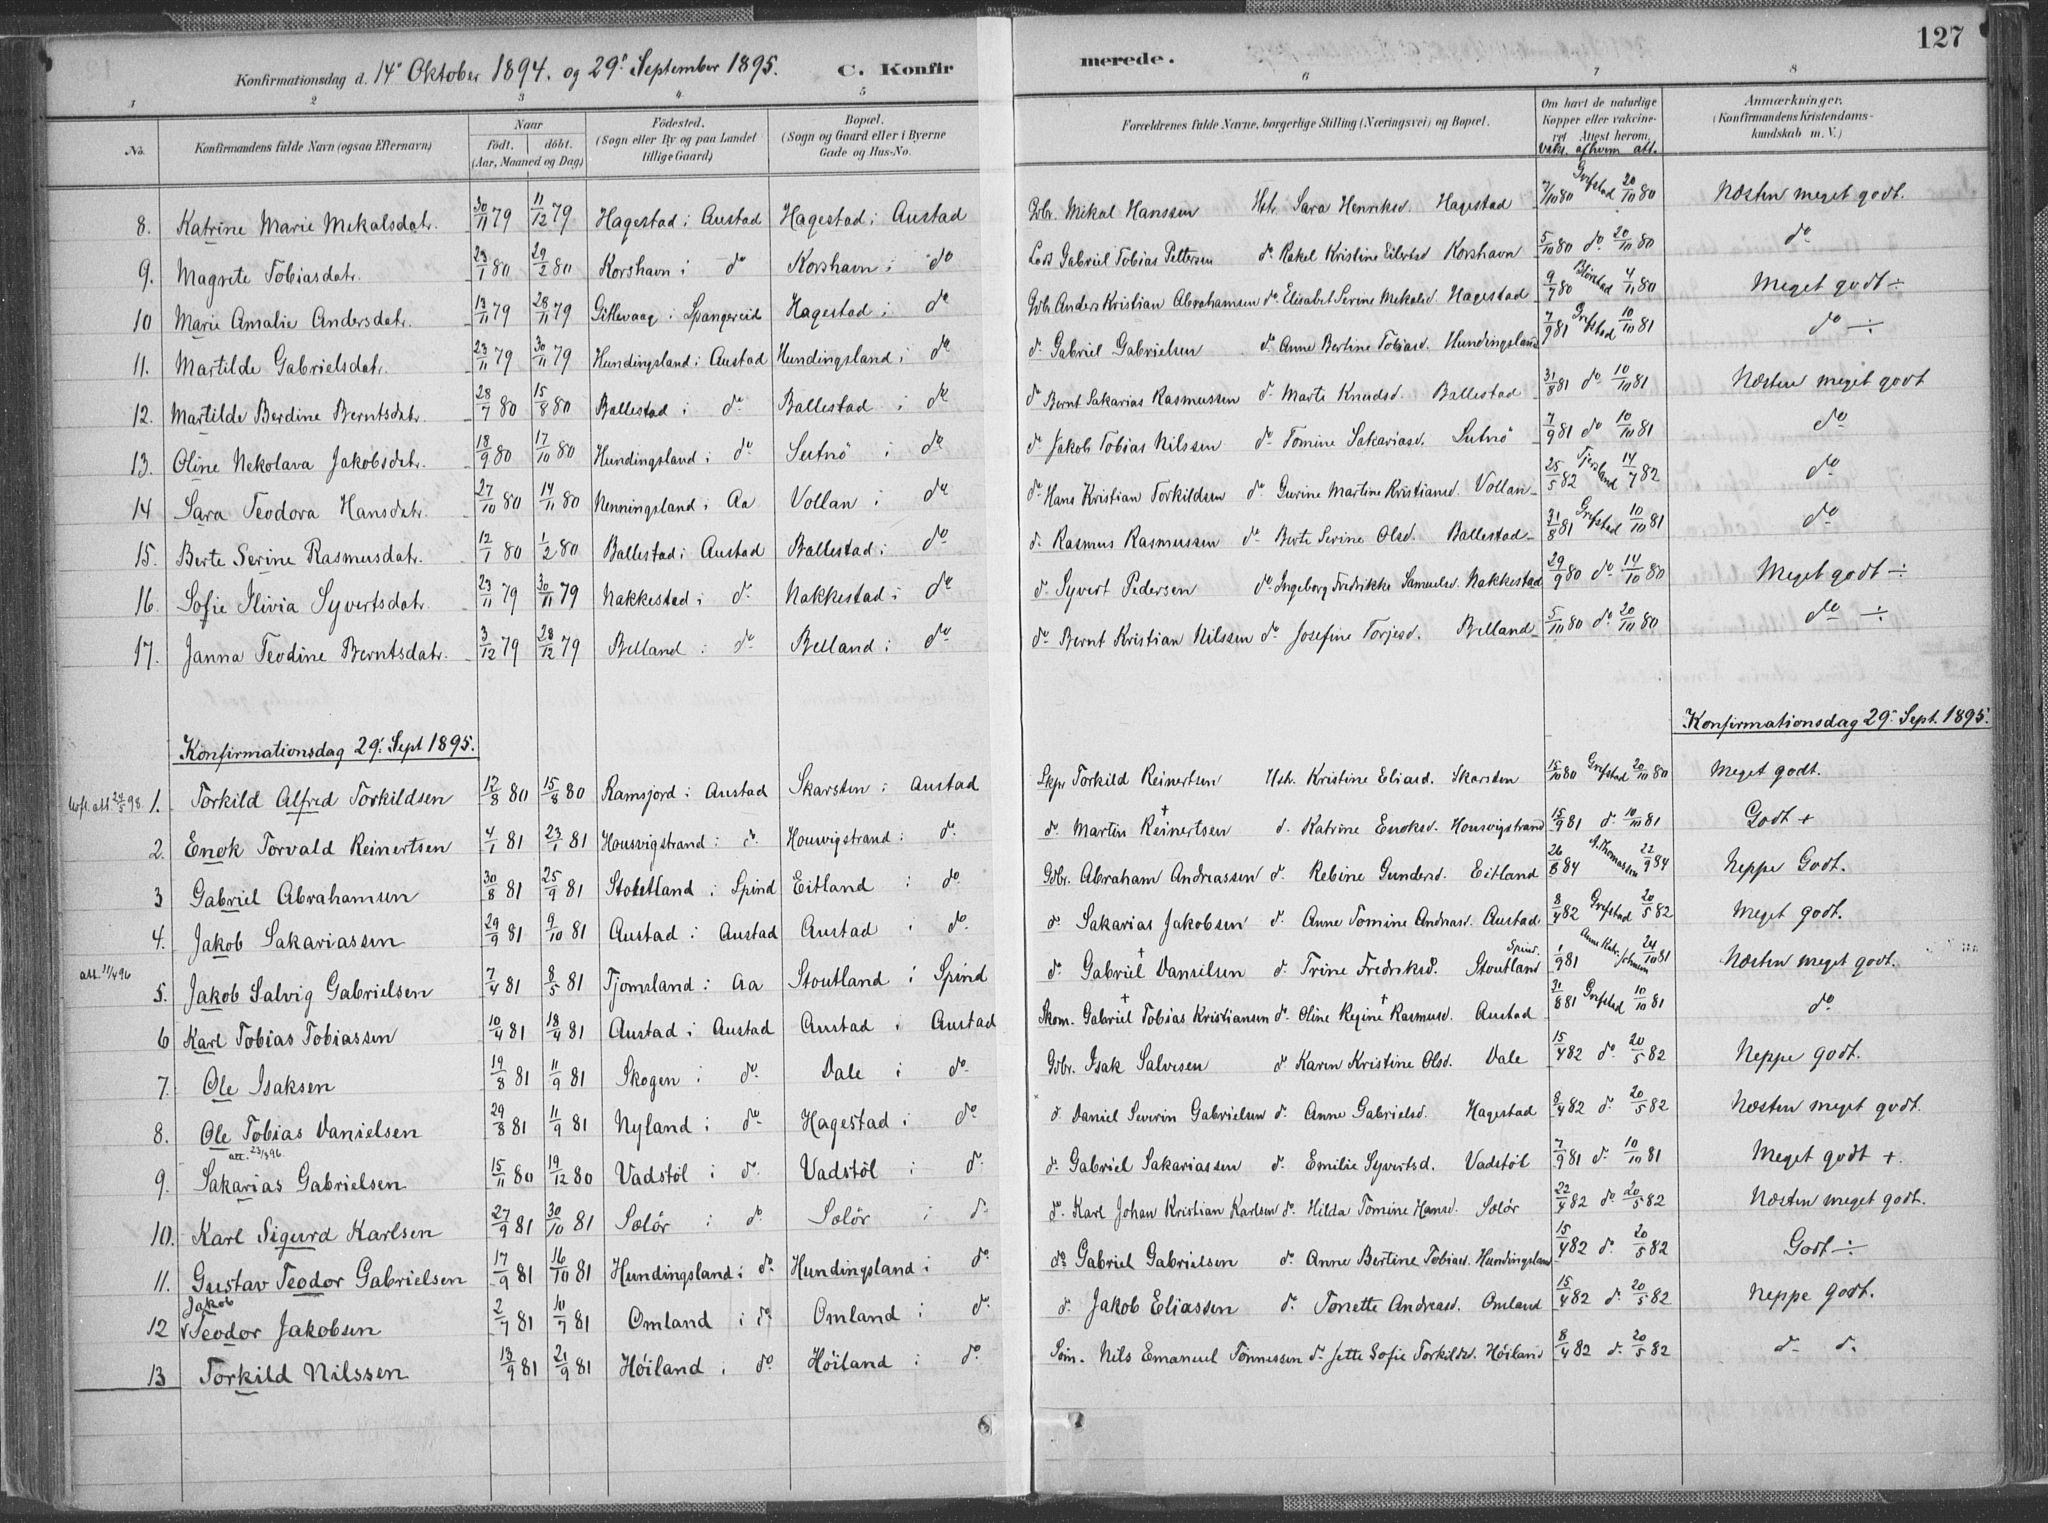 127
Konfirmationsdag d. 14de Oktober 1894. og 29de September 1895. C. Konfirmerede.
1 2 3 4. 5 6 7 8
No. Konfirmandens fulde Navn (ogsaa Efternavn) Naar født. døbt. (Aar, Maaned og Dag) Fødested. (Sogn eller By og paa Landet tillige Gaard) Bopæl. (Sogn og Gaard eller i Byerne Gade og Hus-No. Forældrenes fulde Navne, borgerlige Stilling (Næringsvei) og Bopæl. Om havt de naturlige Kopper eller vakcineret. Attest herom. vakc. afhvem att. Anmærkninger. (Konfirmandens Kristendomskundskab m. V.)
8. Katrine Marie Mekalsdatr. 30/11 79 11/12 79 Hagestad i Austad Hagestad i Austad Gbr. Mikal Hanssen Hst. Sara Henriksd. Hagestad 7/10 80 Grefstad 20/10 80 Næsten meget godt.
9. Magrete Tobiasdatr. 23/1 80 29/2 80 Korshavn i do Korshavn i do Lods Gabriel Tobias Pettersen do Rakel Kristine Eilertsd Korshavn 5/10 80 do 20/10 80 do
10 Marie Amalie Andersdatr. 13/11 79 28/11 79 Gitlevaag i Spangereid Hagestad i do Gbr. Anders Kristian Abrahamsen do Elisabet Serine Mekalsd. Hagestad 9/7 80 4/11 80 Meget godt ÷
11. Martilde Gabrielsdatr. 23/11 79 30/11 79 Hundingsland i Austad Hundingsland i do d. Gabriel Gabrielsen do Anne Bertine Tobiasd. Hundingsland 7/9 81 Grefstad 10/10 81 do ÷
12. Martilde Berdine Berntsdatr. 28/7 80 15/8 80 Ballestad i do Ballestad i do d. Bernt Sakarias Rasmussen d. Marte Knudsd. Ballestad 31/8 81 do 10/10 81 Næsten meget godt
13. Oline Nekolava Jakobsdatr. 18/9 80 17/10 80 Hundingsland i do Sutnö i do d. Jakob Tobias Nilssen do Tomine Sakariasd. Sutnö 7/9 81 do 10/10 81 do
14 Sara Teodora Hansdatr. 27/10 80 14/11 80 Nenningsland i Aa Vollan i do d. Hans Kristian Torkildsen do Gurine Martine Kristiansd. Vollan 25/5 82 Tjersland 14/7 82 do
15. Berte Serine Rasmusdatr. 12/1 80 1/2 80 Ballestad i Austad Ballestad i do d. Rasmus Rasmussen do Berte Serine Olsd. Ballestad 31/8 81 Grefstad 10/10 81 do
16. Sofie Ilivia Syvertsdatr. 23/11 79 30/11 79 Nakkestad i d. Nakkestad i do d. Syvert Pedersen do Ingeborg Fredrikke Samuelsd. Nakkestad 29/9 80 do 14/10 80 Meget godt ÷
17. Janna Teodine Berntsdatr. 3/12 79 28/12 79 Belland i do Belland i do do Bernt Kristian Nilssen do Josefine Torjesd. Belland 5/10 80 do 20/10 80 do ÷
Konfirmationsdag 29de Sept 1895. Konfirmationsdag 29de Sept. 1895.
1. Torkild Alfred Torkildsen 12/8 80 15/8 80 Ramsjord i Austad Skarsten i Austad Skpr Torkild Reinertsen Hst. Kristine Eliasd. Skarsten 15/10 80 Grefstad 20/10 80 Meget godt.
2. Enok Torvald Reinertsen 4/1 81 23/1 81 Housvigstrand i d. Housvigstrand i d. d. Martin Reinertsen † d. Katrine Enoksd. Housvigstrand 15/9 81 d. 10/10 81 Godt +
3 Gabriel Abrahamsen 30/8 81 25/9 81 Stoketland i Spind Eitland i do Gbr. Abraham Andreassen d. Rebine Gundersd. Eitland 26/8 84 A. Thomassen 22/9 84 Neppe Godt.
4. Jakob Sakariassen 29/9 81 9/10 81 Austad i Austad Austad i do d. Sakarias Jakobsen d. Anne Tomine Andreasd. Austad 8/4 82 Grefstad 20/5 82 Meget godt.
att. 11/4 96 5. Jakob Salvig Gabrielsen 7/4 81 8/5 81 Tjomsland i Aa Stoutland i Spind d. Gabriel Danielsen † d. Trine Fredriksd. Stoutland Spind. 1/9 81 24/10 81 Næsten meget godt.
6 Karl Tobias Tobiassen 10/4 81 18/4 81 Austad i Austad Austad i Austad Skom. Gabriel † Tobias Kristiansen d. Oline Regine † Rasmusd. Austad 31/8 81 Grefstad 10/10 81 do
7. Ole Isaksen 19/8 81 11/9 81 Skogen i do Dale i do Gbr. Isak Salvesen d. Karen Kristine Olsd. Dale 15/4 82 do 20/5 82 Neppe godt.
8. Ole Tobias Danielsen 29/8 81 11/9 81 Nyland i do Hagestad i do d. Daniel Severin Gabrielsen d. Anne Gabrielsd. Hagestad 8/4 82 d. 20/5 82 Næsten meget godt.
9. Sakarias Gabrielsen 15/11 80 19/12 80 Vadstöl i d. Vadstöl i d. d. Gabriel Sakariassen d. Emilie Syvertsd. Vadstöl 7/9 81 d. 10/10 81 Meget godt +.
10. Karl Sigurd Karlsen 27/9 81 30/10 81 Sælör i d. Sælör i d. d. Karl Johan Kristian Karlsen d. Hilda Tomine Hansd. Sælör 22/4 82 do 20/5 82 Næsten meget godt.
11. Gustav Teodor Gabrielsen 17/9 81 16/10 81 Hundingsland i do Hundingsland i d. do Gabriel Gabrielsen d. Anne Bertine Tobiasd. Hundingsland 15/4 82 d. 20/5 82 Godt ÷
12 Jakob Teodor Jakobsen 2/7 81 10/7 81 Omland i do Omland i d. d. Jakob Eliassen d. Tonette Andreasd. Omland 15/4 82 d. 20/5 82 Neppe godt.
13 Torkild Nilssen 13/9 81 21/9 81 Höiland i do Höiland i do Söm. Nils Emanuel Tønnessen d. Jette Sofie Torkildsd. Höiland 8/4 82 d. 20/5 82 d. d.